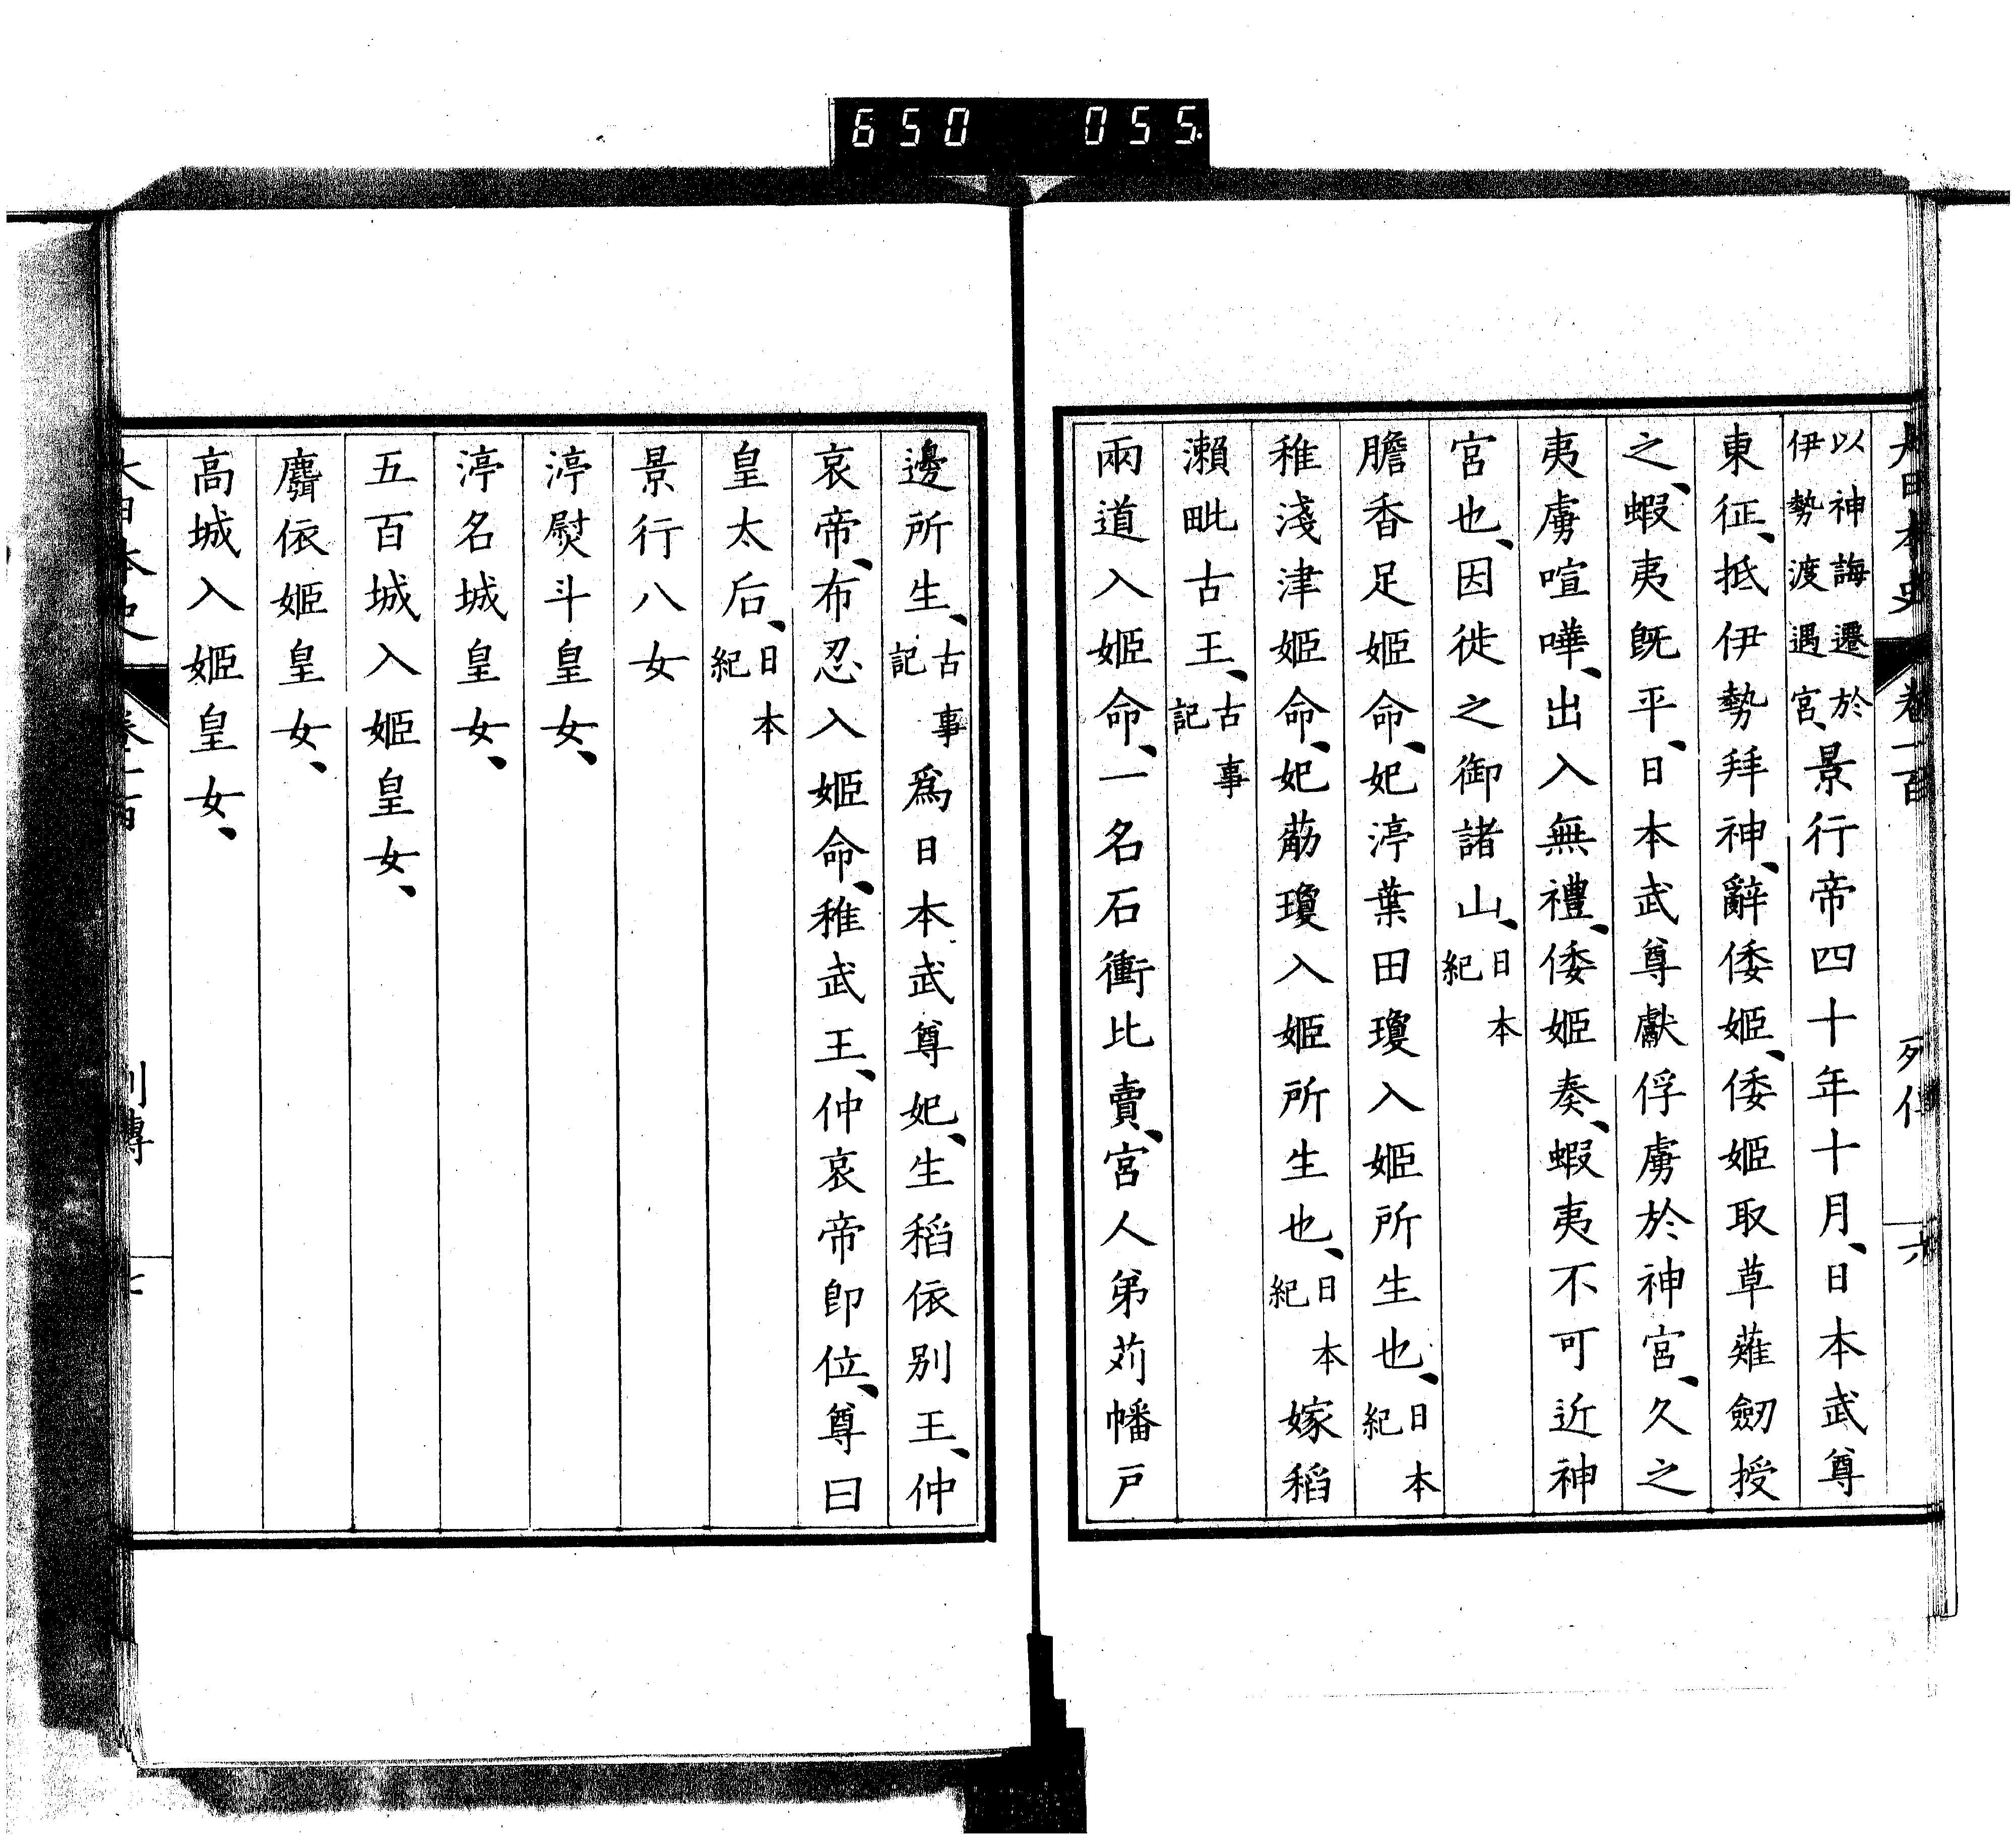 650 055
大日本史 卷一百 列傳 六
以神誨遷於伊勢渡遇宮、景行帝四十年十月、日本武尊
東征、抵伊勢拜神、辭倭姬、倭姬取草薙劒授
之、蝦夷既平、日本武尊獻俘虜於神宮、久之
夷虜喧嘩、出入無禮、倭姬奏、蝦夷不可近神
宮也、因徙之御諸山、日本紀
膽香足姬命、妃渟葉田瓊入姬所生也、日本紀
稚淺津姬命、妃薊瓊入姬所生也、日本紀嫁稻
瀨毗古王、古事記
兩道入姬命、一名石衝比賣、宮人弟苅幡戸
邊所生、古事記爲日本武尊妃、生稻依別王、仲
哀帝、布忍入姬命、稚武王、仲哀帝卽位、尊曰
皇太后、日本紀
景行八女
渟熨斗皇女、
渟名城皇女、
五百城入姬皇女、
麛依姬皇女、
高城入姬皇女、
大日本史 卷一百 列傳 七